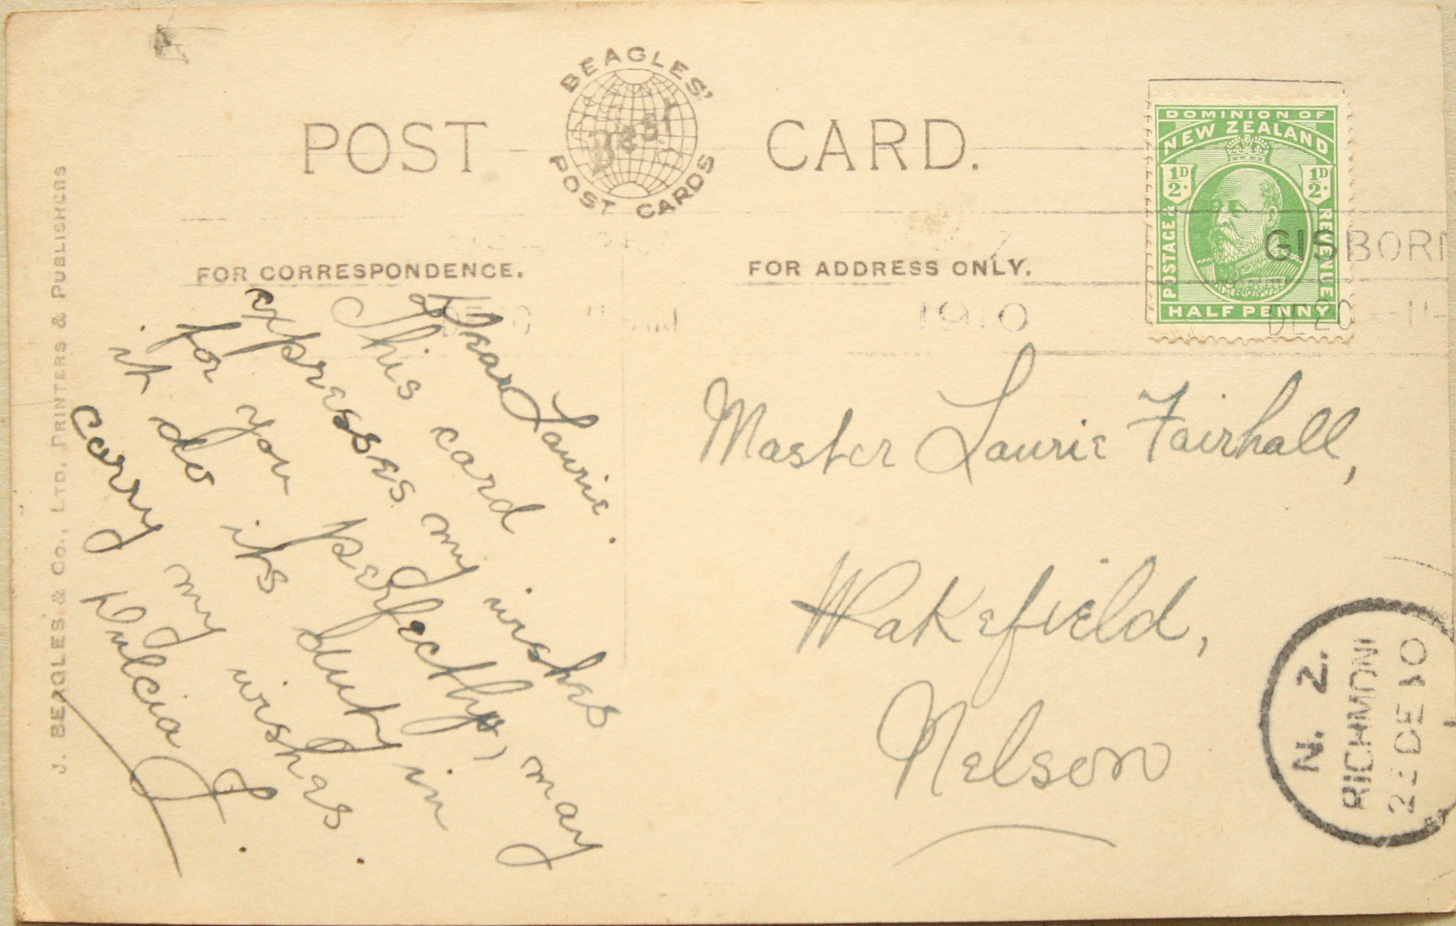 POST CARD.
BEAGLES'
Best
POST CARDS
DOMINION OF
NEW ZEALAND
½D. ½D.
POSTAGE & REVENUE
HALF PENNY
GISBORN
DE20 11
1910
FOR CORRESPONDENCE.
FOR ADDRESS ONLY.
Dear Laurie.
This card
expresses my wishes
for you perfectly, may
it do its duty in
carry my wishes.
Dulcia J.
Master Laurie Fairhall,
Wakefield,
Nelson
N. Z.
RICHMOND
22 DE 10
J. BEAGLES & Co., LTD. PRINTERS & PUBLISHERS